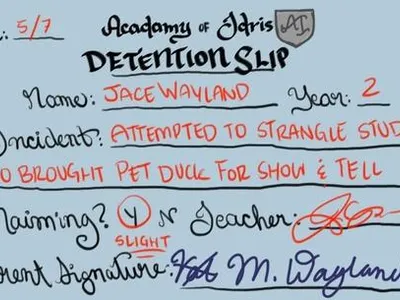 : 5/7 Academy of Idris AI
DETENTION SLIP
Name: JACE WAYLAND Year: 2
Incident: ATTEMPTED TO STRANGLE STUD
O BROUGHT PET DUCK FOR SHOW & TELL
Maiming? Y N Teacher:
SLIGHT
rent Signature: M. Wayland